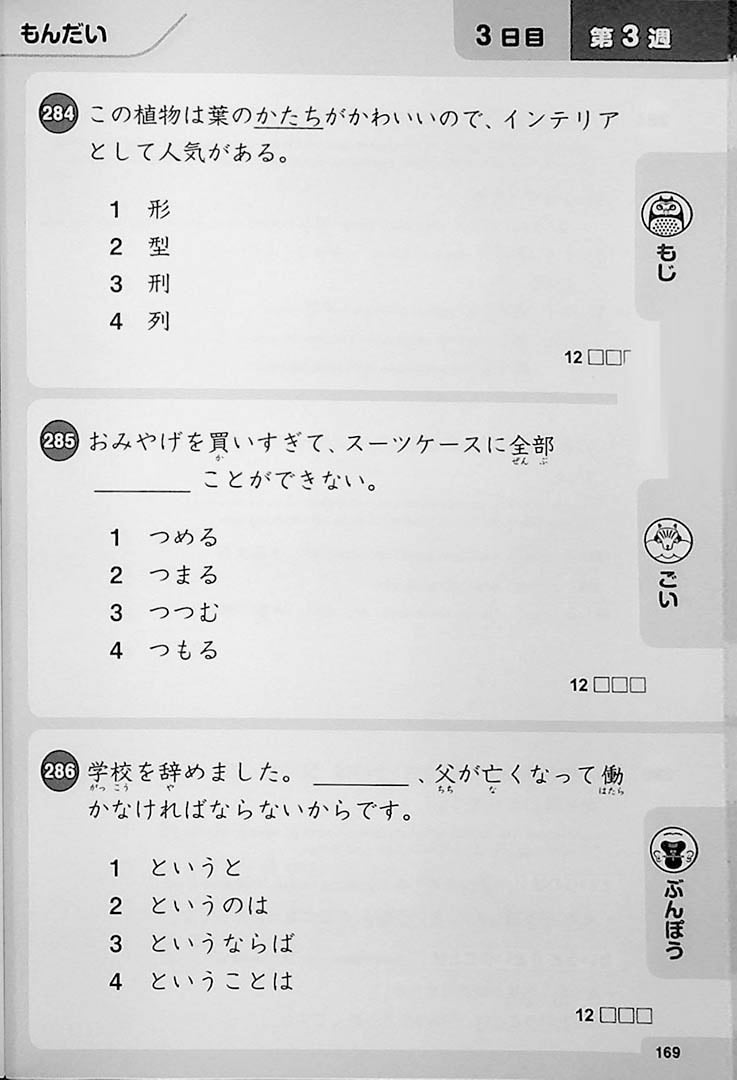 もんだい
3日目
第3週
284 この植物は葉のかたちがかわいいので、インテリア
として人気がある。
1 形
2 型
3 刑
4 列
12 □□□
もじ
285 おみやげを買いすぎて、スーツケースに全部
か ぜん ぶ
______ ことができない。
1 つめる
2 つまる
3 つつむ
4 つもる
12 □□□
ごい
286 学校を辞めました。______、父が亡くなって働
がっ こう や ちち な はたら
かなければならないからです。
1 というと
2 というのは
3 というならば
4 ということは
12 □□□
ぶんぽう
169